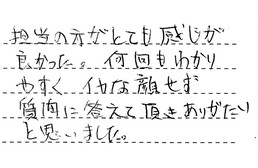 担当の方がとても感じが
良かった。何回もわかり
やすく イヤな顔せず
質問に答えて頂きありがたい
と思いました。